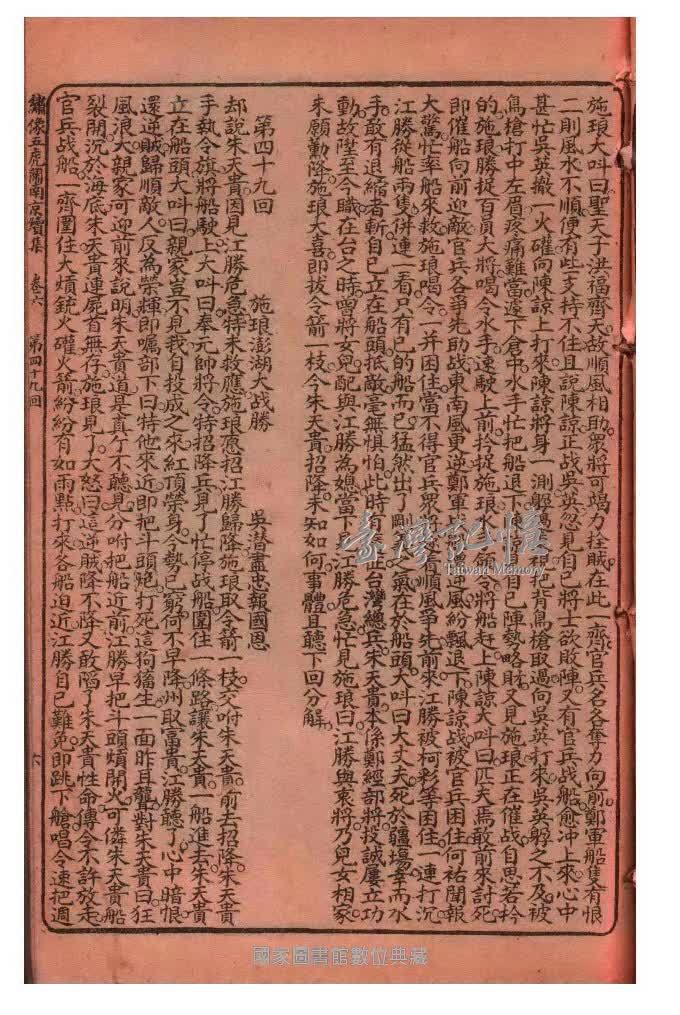 施琅大叫曰聖天子洪福齊天故順風相助眾將可竭力拴賊在此一齊官兵名各奪力向前鄭軍船隻有恨
二則風水不順便有些支持不住且說陳諒正战吳英忽見自己將士欲敗陣又有官兵战船愈冲上來心中
甚忙吳英撤一火礶向陳諒上打來陳諒將身一測躲過
把背鳥槍取過向吳英打來吳英躲之不及被
鳥槍打中左眉疼痛難當遂下倉中水手忙把船退下
自己陣勢略
又見施琅正在催战自思若衿
的施琅勝捉百員大將喝令水手速駛上前衿捉施琅水
令將船赶上陳諒大叫曰匹夫焉敢前來討死
即催船向前迎敵官兵各爭先助战東南風更逆鄭軍战
逆風紛飄退下陳諒战被官兵困住何祐聞報
大驚忙率船來救施琅喝令一并困住當不得官兵眾將
有順風爭先前來江勝被柯彩等困住一連打沉
江勝從船兩隻併連一看只有己的船而已猛然出了
之氣在於船頭大叫曰大丈夫死於疆場幸而水
手敢有退縮者斬自己立在船頭抵敵毫無惧怕此時有
台灣總兵朱天貴本係鄭經部將投誠屢立功
動故陞至今職在台之時曾將女兒配與江勝為媳當下
江勝危急忙見施琅曰江勝與衷將乃兒女相家
末願勸降施琅大喜即拔令箭一枝令朱天貴招降未知如何事體且聽下回分解
第四十九回
施琅澎湖大战勝
吳潜盡忠報國恩
却說朱天貴因見江勝危急特來救應施琅愿招江勝歸降施琅取令箭一枝交咐朱天貴前去招降朱天貴
手執令旗將船駛上大叫曰奉元帥將令特招降兵見了忙停战船圍住一條路讓朱天貴一船進去朱天貴
立在船頭大叫曰親家豈不見我自投成之來紅頂榮身今勢已窮何不早降州取富貴江勝聽了心中暗恨
還逆賊歸順敵人反為榮輝即嘱部下曰特他來近即把斗頭砲打死這狗猪生一面昨耳聾對朱天貴曰狂
風浪大親家可迎前來說明朱天貴道是真亍不聽見分咐把船近前江勝早把斗頭熕開火可憐朱天貴船
裂開沉於海底朱天貴連屍首無存施琅見了大怒曰這逆賊降不降又敢陷了朱天貴性命傳令不許放走
官兵战船一齊圍住大熕銃火礶火箭紛紛有如雨點打來各船迫近江勝自己難免即跳下艙唱令速把週
繡像五虎鬧南京續集 卷六 第四十九回 六
臺灣記憶
Taiwan Memory
國家圖書館數位典藏